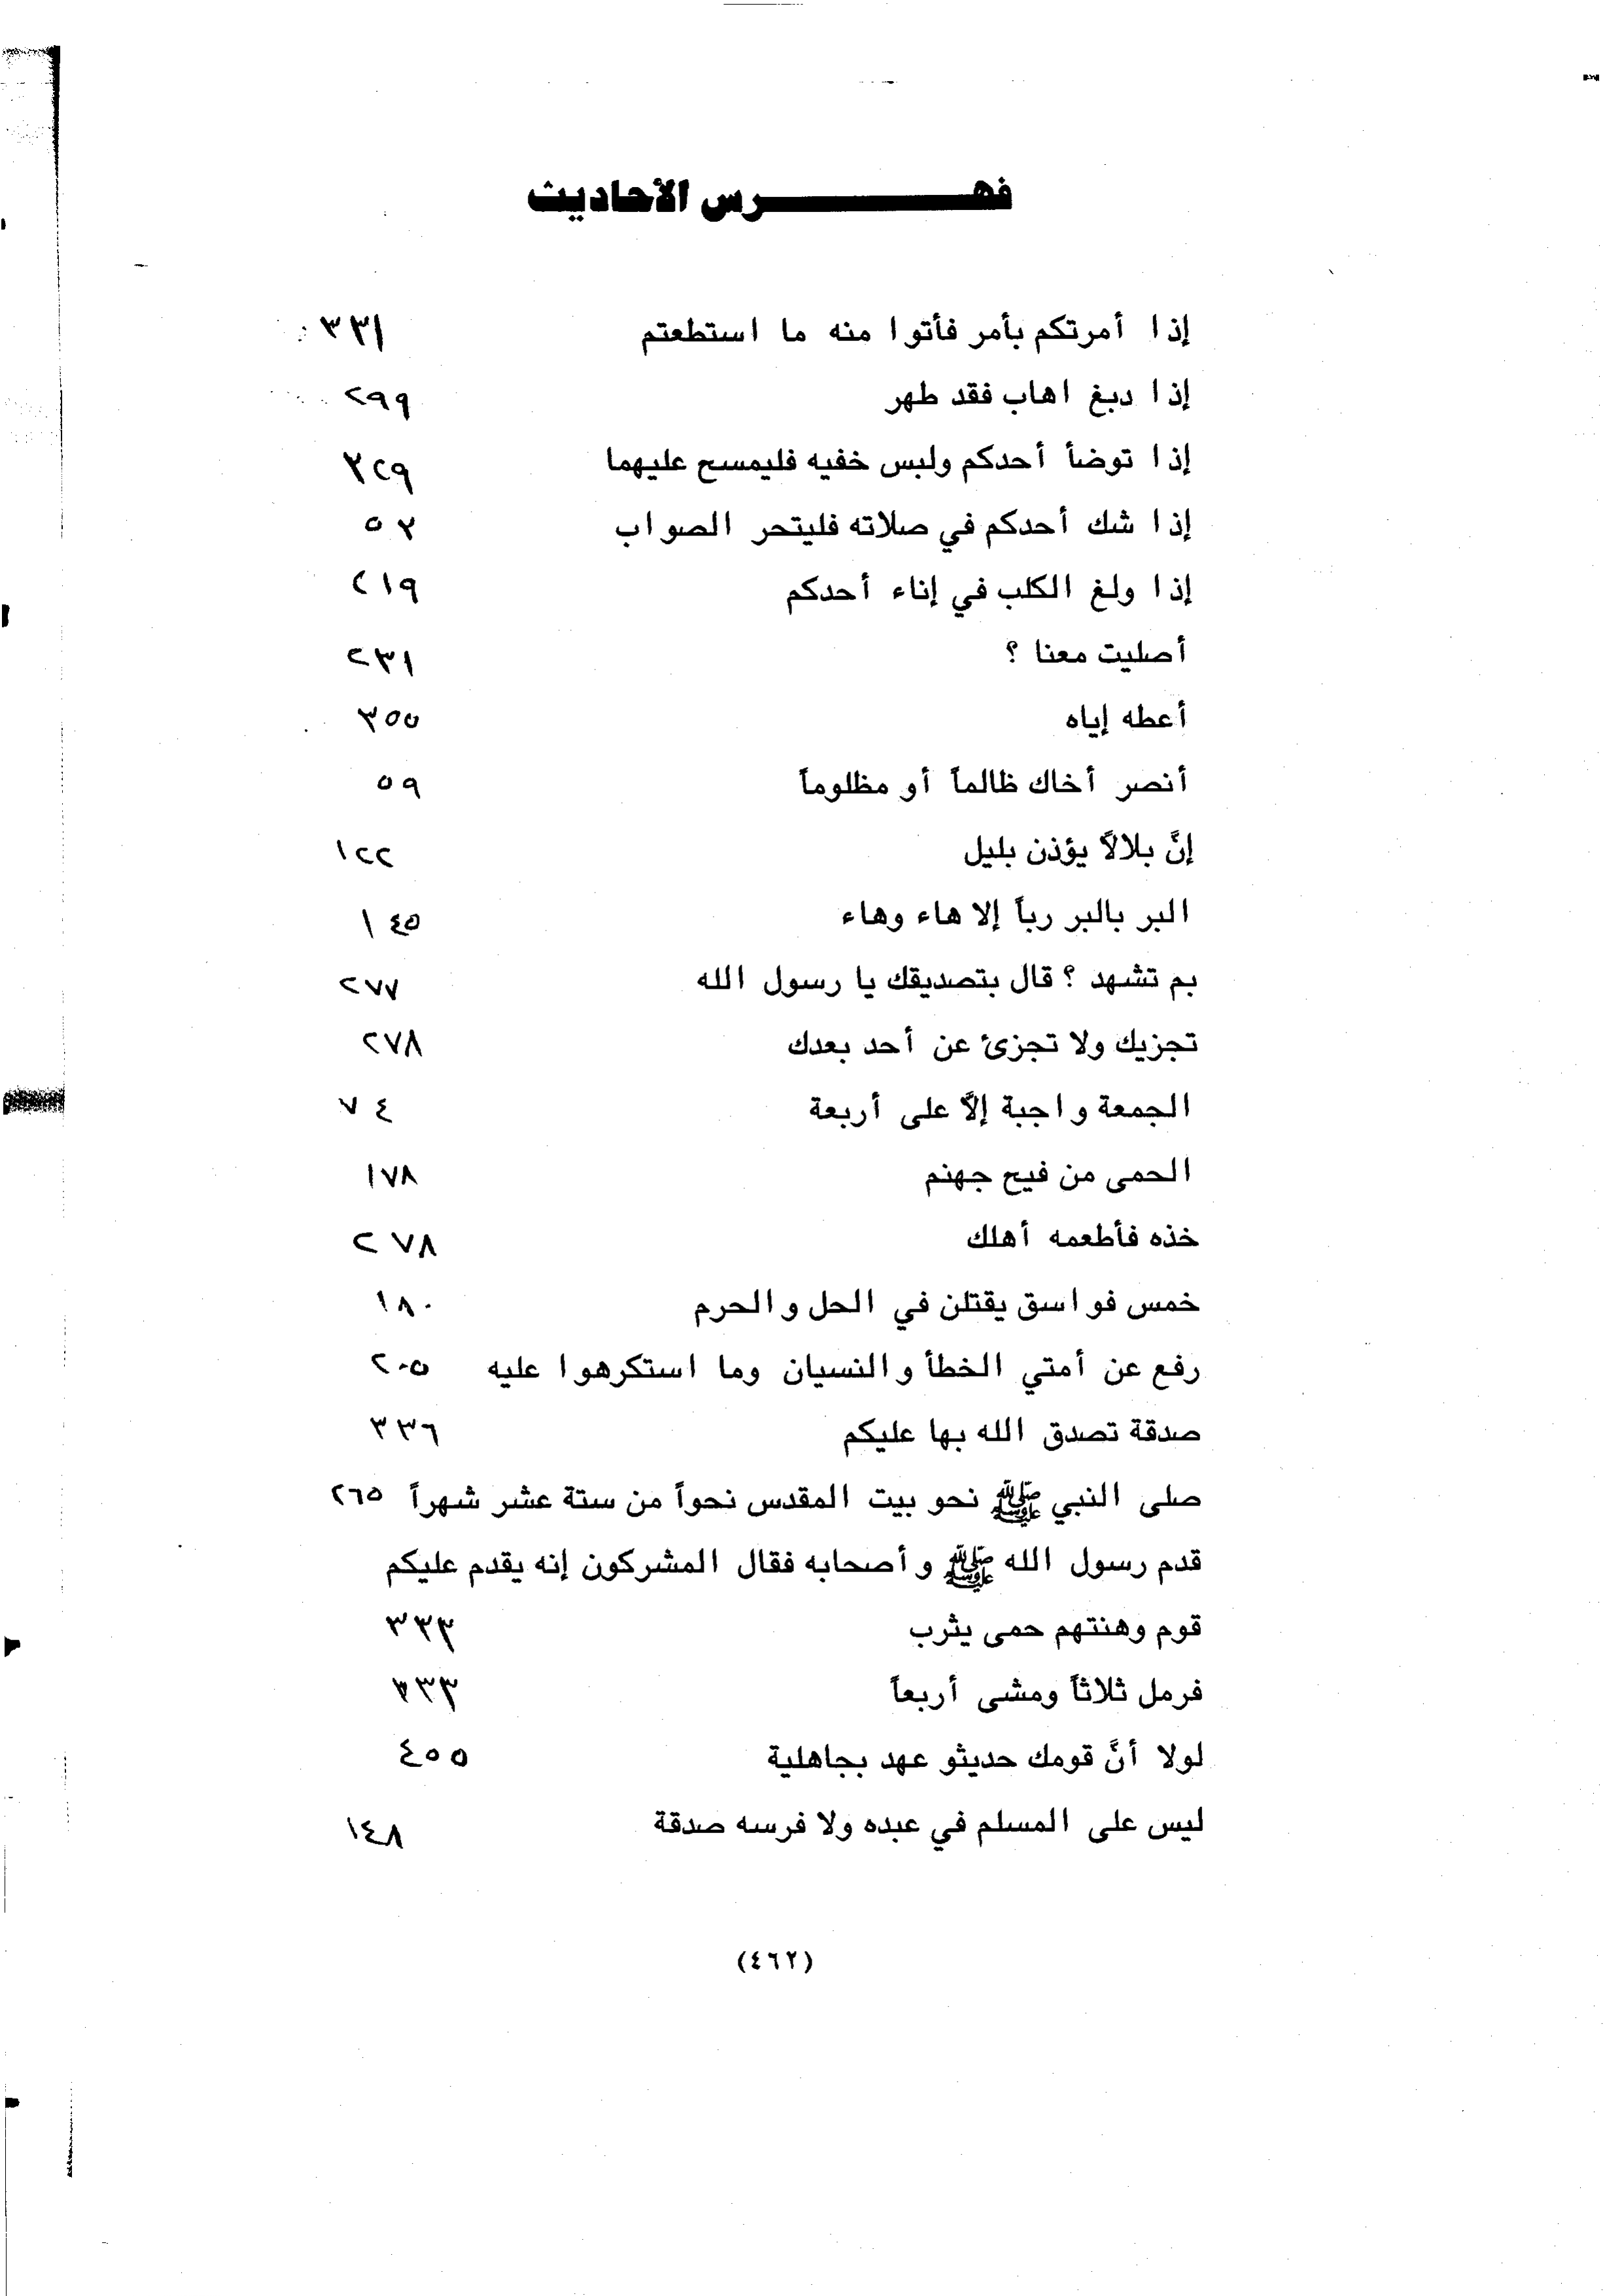 فهرس الأحاديث
إذا أمرتكم بأمر فأتوا منه ما استطعتم ٣٣١
إذا دبغ اهاب فقد طهر ٢٩٩
إذا توضأ أحدكم ولبس خفيه فليمسح عليهما ٣٢٩
إذا شك أحدكم في صلاته فليتحر الصواب ٥٣
إذا ولغ الكلب في إناء أحدكم ٢١٩
أصليت معنا ؟ ٢٣١
أعطه إياه ٣٥٥
أنصر أخاك ظالماً أو مظلوماً ٥٩
إنَّ بلالاً يؤذن بليل ١٢٢
البر بالبر رباً إلا هاء وهاء ١٤٥
بم تشهد ؟ قال بتصديقك يا رسول الله ٢٧٧
تجزيك ولا تجزئ عن أحد بعدك ٢٧٨
الجمعة واجبة إلاَّ على أربعة ٧٤
الحمى من فيح جهنم ١٧٨
خذه فأطعمه أهلك ٢٧٨
خمس فواسق يقتلن في الحل والحرم ١٨٠
رفع عن أمتي الخطأ والنسيان وما استكرهوا عليه ٢٠٥
صدقة تصدق الله بها عليكم ٣٣٦
صلى النبي ﷺ نحو بيت المقدس نحواً من ستة عشر شهراً ٢٦٥
قدم رسول الله ﷺ وأصحابه فقال المشركون إنه يقدم عليكم
قوم وهنتهم حمى يثرب ٣٣٣
فرمل ثلاثاً ومشى أربعاً ٣٣٣
لولا أنَّ قومك حديثو عهد بجاهلية ٤٥٥
ليس على المسلم في عبده ولا فرسه صدقة ١٤٨
(٤٦٢)